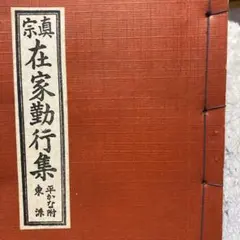 真宗
在家勤行集
平かな附
東派